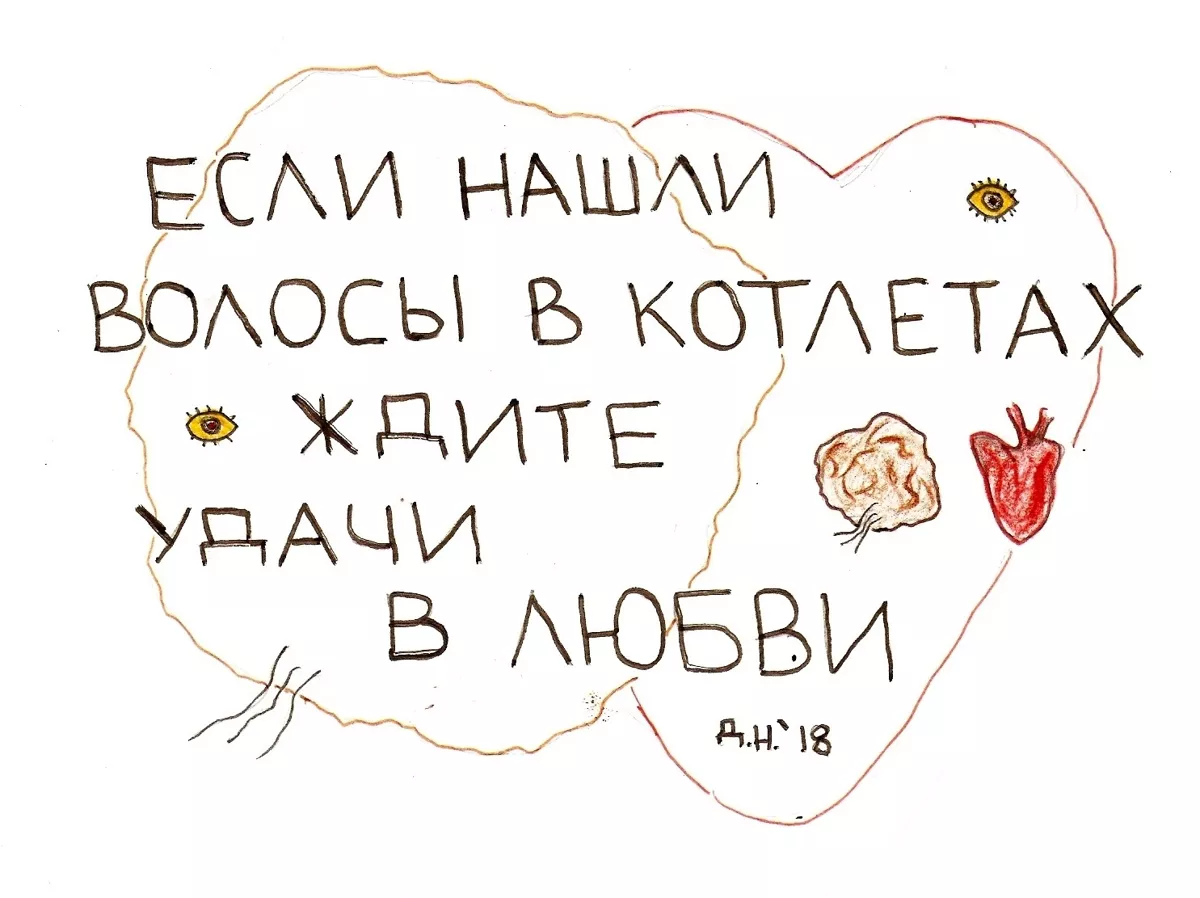 ЕСЛИ НАШЛИ
ВОЛОСЫ В КОТЛЕТАХ
ЖДИТЕ
УДАЧИ
В ЛЮБВИ
Д.Н.`18